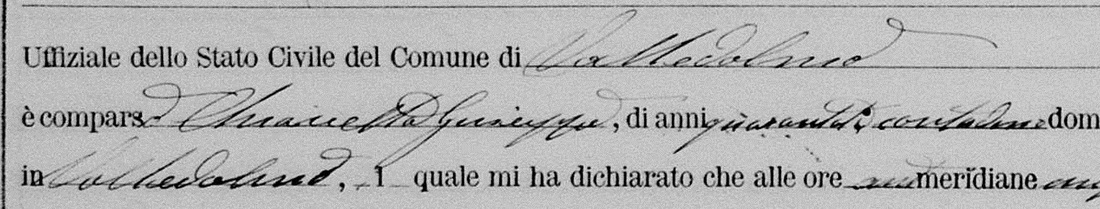 Uffiziale dello Stato Civile del Comune di Valledolmo
è comparso Chiavetta Giuseppe, di anni quaranta, contadino dom
in Valledolmo, I quale mi ha dichiarato che alle ore meridiane